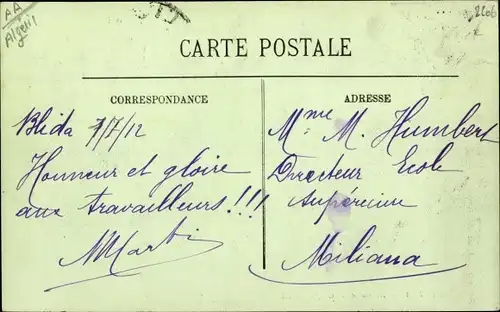 AA
Algéri
2606
CARTE POSTALE
CORRESPONDANCE
Blida 7/7/12
Honneur et gloire
aux travailleurs!!!
ADRESSE
Mme M. Humbert
Directeur Ecole
Supérieure
Miliana